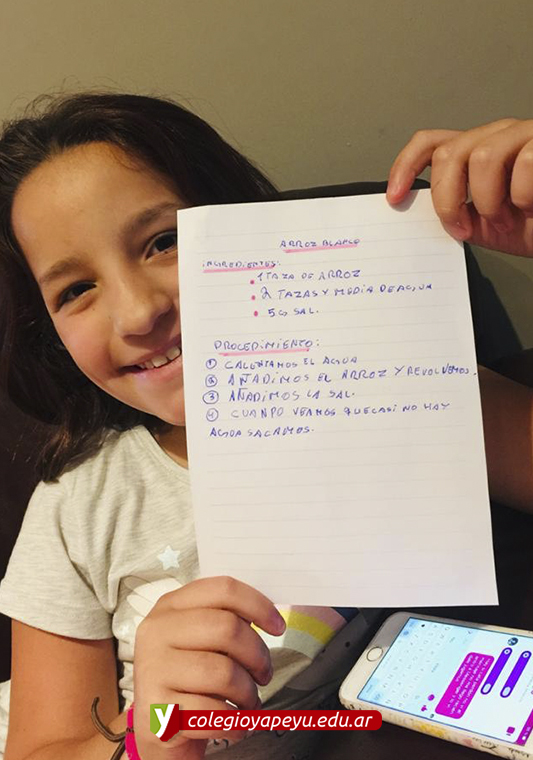 ARROZ BLANCO
INGREDIENTES:
• 1 TAZA DE ARROZ
• 2 TAZAS Y MEDIA DE AGUA
• 5G SAL.
PROCEDIMIENTO:
① CALENTAMOS EL AGUA
② AÑADIMOS EL ARROZ Y REVOLVEMOS.
③ AÑADIMOS LA SAL.
④ CUANDO VEAMOS QUE CASI NO HAY
AGUA SACAMOS.
y colegioyapeyu.edu.ar